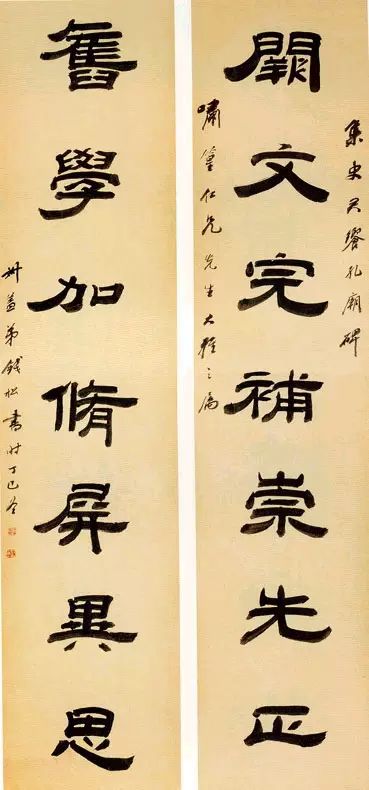 集史君饗孔廟碑
闕文完補崇先正
嘯篁仁兄先生大雅之屬
舊學加脩屏異思
叔蓋弟錢松書時丁巳